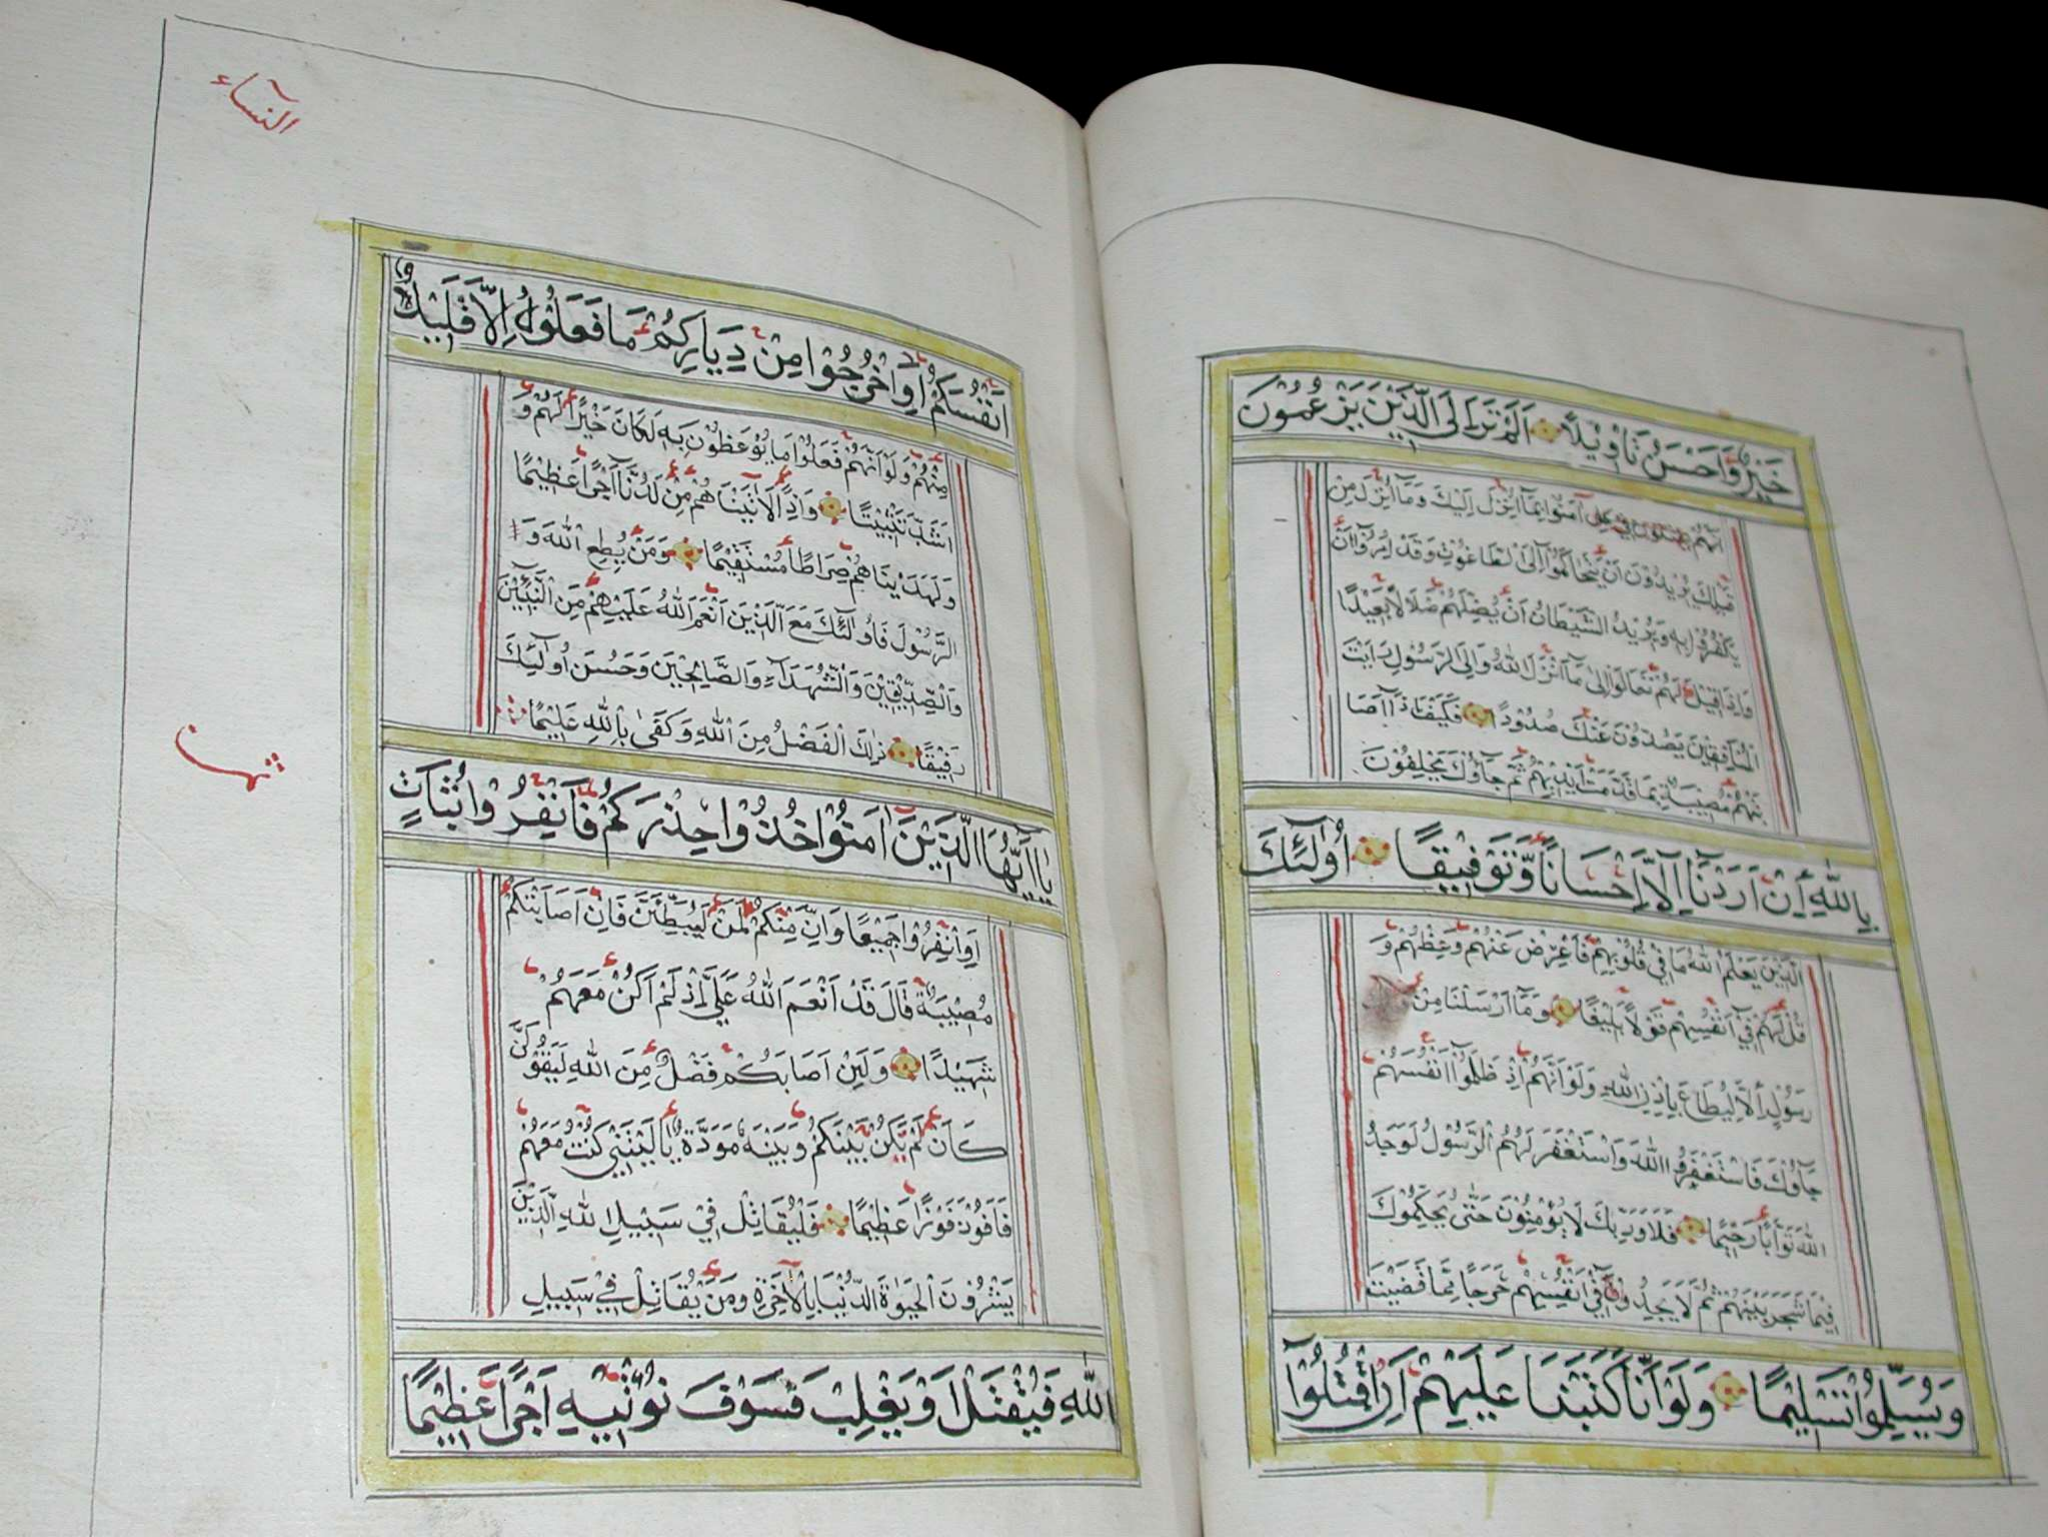 خَيْرٌ وَاَحْسَنُ تَاْوِيْلاً اَلَمْ تَرَ اِلَى الَّذِيْنَ يَزْعُمُوْنَ
اَنَّهُمْ آمَنُوْا بِمَا اُنْزِلَ اِلَيْكَ وَمَا اُنْزِلَ مِنْ
قَبْلِكَ يُرِيْدُوْنَ اَنْ يَتَحَاكَمُوْا اِلَى الطَّاغُوْتِ وَقَدْ اُمِرُوْا اَنْ
يَكْفُرُوْا بِهِ وَيُرِيْدُ الشَّيْطَانُ اَنْ يُضِلَّهُمْ ضَلَالاً بَعِيْدًا
وَاِذَا قِيْلَ لَهُمْ تَعَالَوْا اِلَى مَا اَنْزَلَ اللّٰهُ وَاِلَى الرَّسُوْلِ رَاَيْتَ
الْمُنَافِقِيْنَ يَصُدُّوْنَ عَنْكَ صُدُوْدًا فَكَيْفَ اِذَا اَصَا
بَتْهُمْ مُصِيْبَةٌ بِمَا قَدَّمَتْ اَيْدِيْهِمْ ثُمَّ جَاؤُكَ يَحْلِفُوْنَ
بِاللّٰهِ اِنْ اَرَدْنَا اِلَّا اِحْسَانًا وَّتَوْفِيْقًا اُولٰئِكَ
الَّذِيْنَ يَعْلَمُ اللّٰهُ مَا فِيْ قُلُوْبِهِمْ فَاَعْرِضْ عَنْهُمْ وَعِظْهُمْ وَ
قُلْ لَهُمْ فِيْ اَنْفُسِهِمْ قَوْلاً بَلِيْغًا وَمَا اَرْسَلْنَا مِنْ
رَسُوْلٍ اِلَّا لِيُطَاعَ بِاِذْنِ اللّٰهِ وَلَوْ اَنَّهُمْ اِذْ ظَلَمُوْا اَنْفُسَهُمْ
جَاؤُكَ فَاسْتَغْفَرُوا اللّٰهَ وَاسْتَغْفَرَ لَهُمُ الرَّسُوْلُ لَوَجَدُ
اللّٰهَ تَوَّابًا رَحِيْمًا فَلَا وَرَبِّكَ لَا يُؤْمِنُوْنَ حَتّٰى يُحَكِّمُوْكَ
فِيْمَا شَجَرَ بَيْنَهُمْ ثُمَّ لَا يَجِدُوْا فِيْ اَنْفُسِهِمْ حَرَجًا مِمَّا قَضَيْتَ
وَيُسَلِّمُوْا تَسْلِيْمًا وَلَوْ اَنَّا كَتَبْنَا عَلَيْهِمْ اَنِ اقْتُلُوْا
النّسآء
اَنْفُسَكُمْ اَوِ اخْرُجُوْا مِنْ دِيَارِكُمْ مَا فَعَلُوْهُ اِلَّا قَلِيْلٌ
مِنْهُمْ وَلَوْ اَنَّهُمْ فَعَلُوْا مَا يُوْعَظُوْنَ بِهِ لَكَانَ خَيْرًا لَهُمْ وَ
اَشَدَّ تَثْبِيْتًا وَاِذًا لَاٰتَيْنَاهُمْ مِنْ لَدُنَّا اَجْرًا عَظِيْمًا
وَلَهَدَيْنَاهُمْ صِرَاطًا مُسْتَقِيْمًا وَمَنْ يُطِعِ اللّٰهَ وَ
الرَّسُوْلَ فَاُولٰئِكَ مَعَ الَّذِيْنَ اَنْعَمَ اللّٰهُ عَلَيْهِمْ مِنَ النَّبِيِّيْنَ
وَالصِّدِّيْقِيْنَ وَالشُّهَدَاءِ وَالصَّالِحِيْنَ وَحَسُنَ اُولٰئِكَ
رَفِيْقًا ذٰلِكَ الْفَضْلُ مِنَ اللّٰهِ وَكَفٰى بِاللّٰهِ عَلِيْمًا
يَااَيُّهَا الَّذِيْنَ اٰمَنُوْا خُذُوْا حِذْرَكُمْ فَانْفِرُوْا ثُبَاتٍ
اَوِ انْفِرُوْا جَمِيْعًا وَاِنَّ مِنْكُمْ لَمَنْ لَيُبَطِّئَنَّ فَاِنْ اَصَابَتْكُمْ
مُصِيْبَةٌ قَالَ قَدْ اَنْعَمَ اللّٰهُ عَلَيَّ اِذْ لَمْ اَكُنْ مَعَهُمْ
شَهِيْدًا وَلَئِنْ اَصَابَكُمْ فَضْلٌ مِنَ اللّٰهِ لَيَقُوْلَنَّ
كَاَنْ لَمْ يَكُنْ بَيْنَكُمْ وَبَيْنَهُ مَوَدَّةٌ يَا لَيْتَنِيْ كُنْتُ مَعَهُمْ
فَاَفُوْزَ فَوْزًا عَظِيْمًا فَلْيُقَاتِلْ فِيْ سَبِيْلِ اللّٰهِ الَّذِيْنَ
يَشْرُوْنَ الْحَيٰوةَ الدُّنْيَا بِالْاٰخِرَةِ وَمَنْ يُقَاتِلْ فِيْ سَبِيْلِ
اللّٰهِ فَيُقْتَلْ اَوْ يَغْلِبْ فَسَوْفَ نُؤْتِيْهِ اَجْرًا عَظِيْمًا